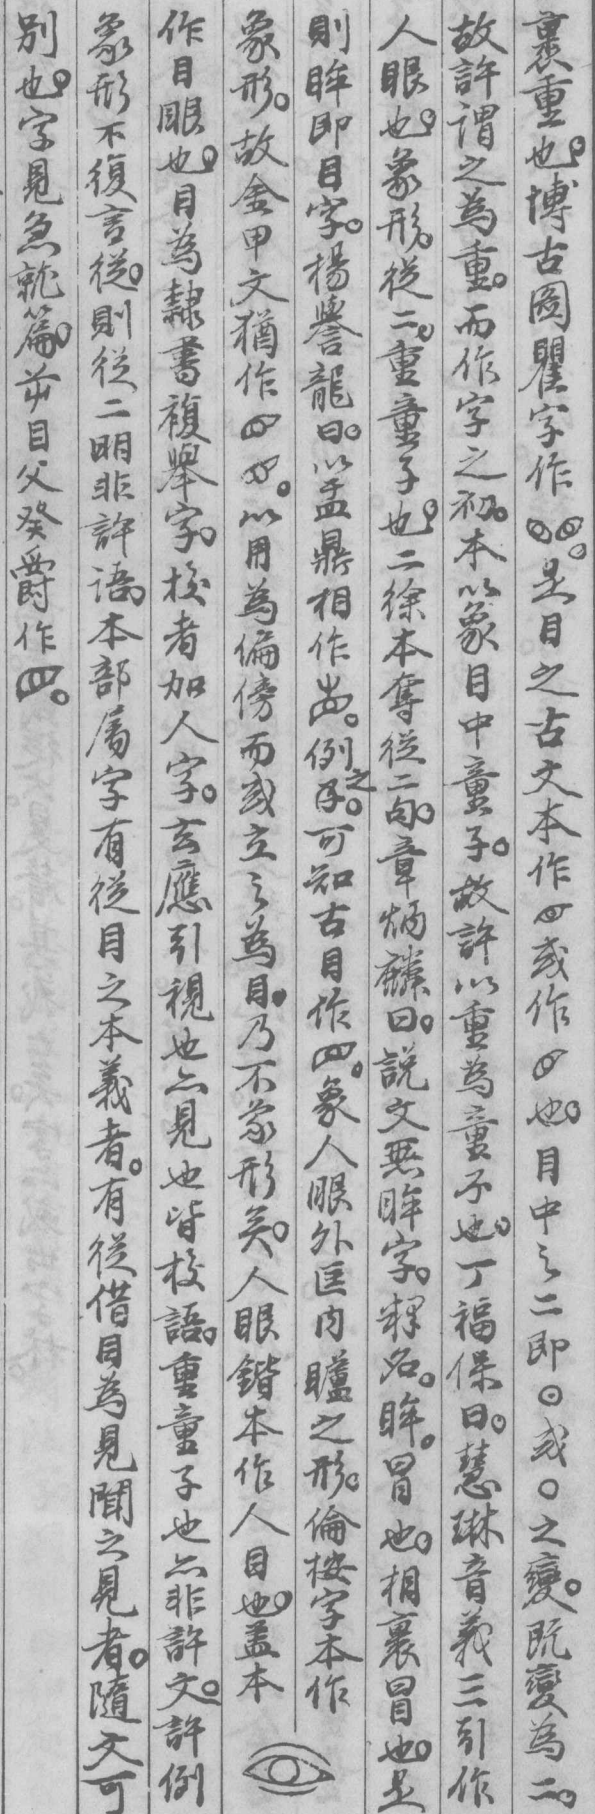 裹重也。博古圖瞿字作。是目之古文本作或作也。目中之二即⊙或○之變。既變為二。
故許謂之為重。而作字之初。本以象目中童子。故許以重為童子也。丁福保曰。慧琳音義三引作
人眼也。象形。從二。重童子也。二徐本奪從二句。章炳麟曰。說文無眸字。釋名。眸。冒也。相裹冒也。是
則眸即目字。楊譽龍曰。以盂鼎相作。例之。可知古目作。象人眼外匡內矑之形。倫按字本作
象形。故金甲文猶作。以用為偏傍而或立之為目。乃不象形矣。人眼鍇本作人目也。蓋本
作目眼也。目為隸書複舉字。校者加人字。玄應引視也亦見也皆校語。重童子也亦非許文。許例
象形不復言從。則從二明非許語。本部屬字有從目之本義者。有從借目為見聞之見者。隨文可
別也。字見急就篇。目父癸爵作。